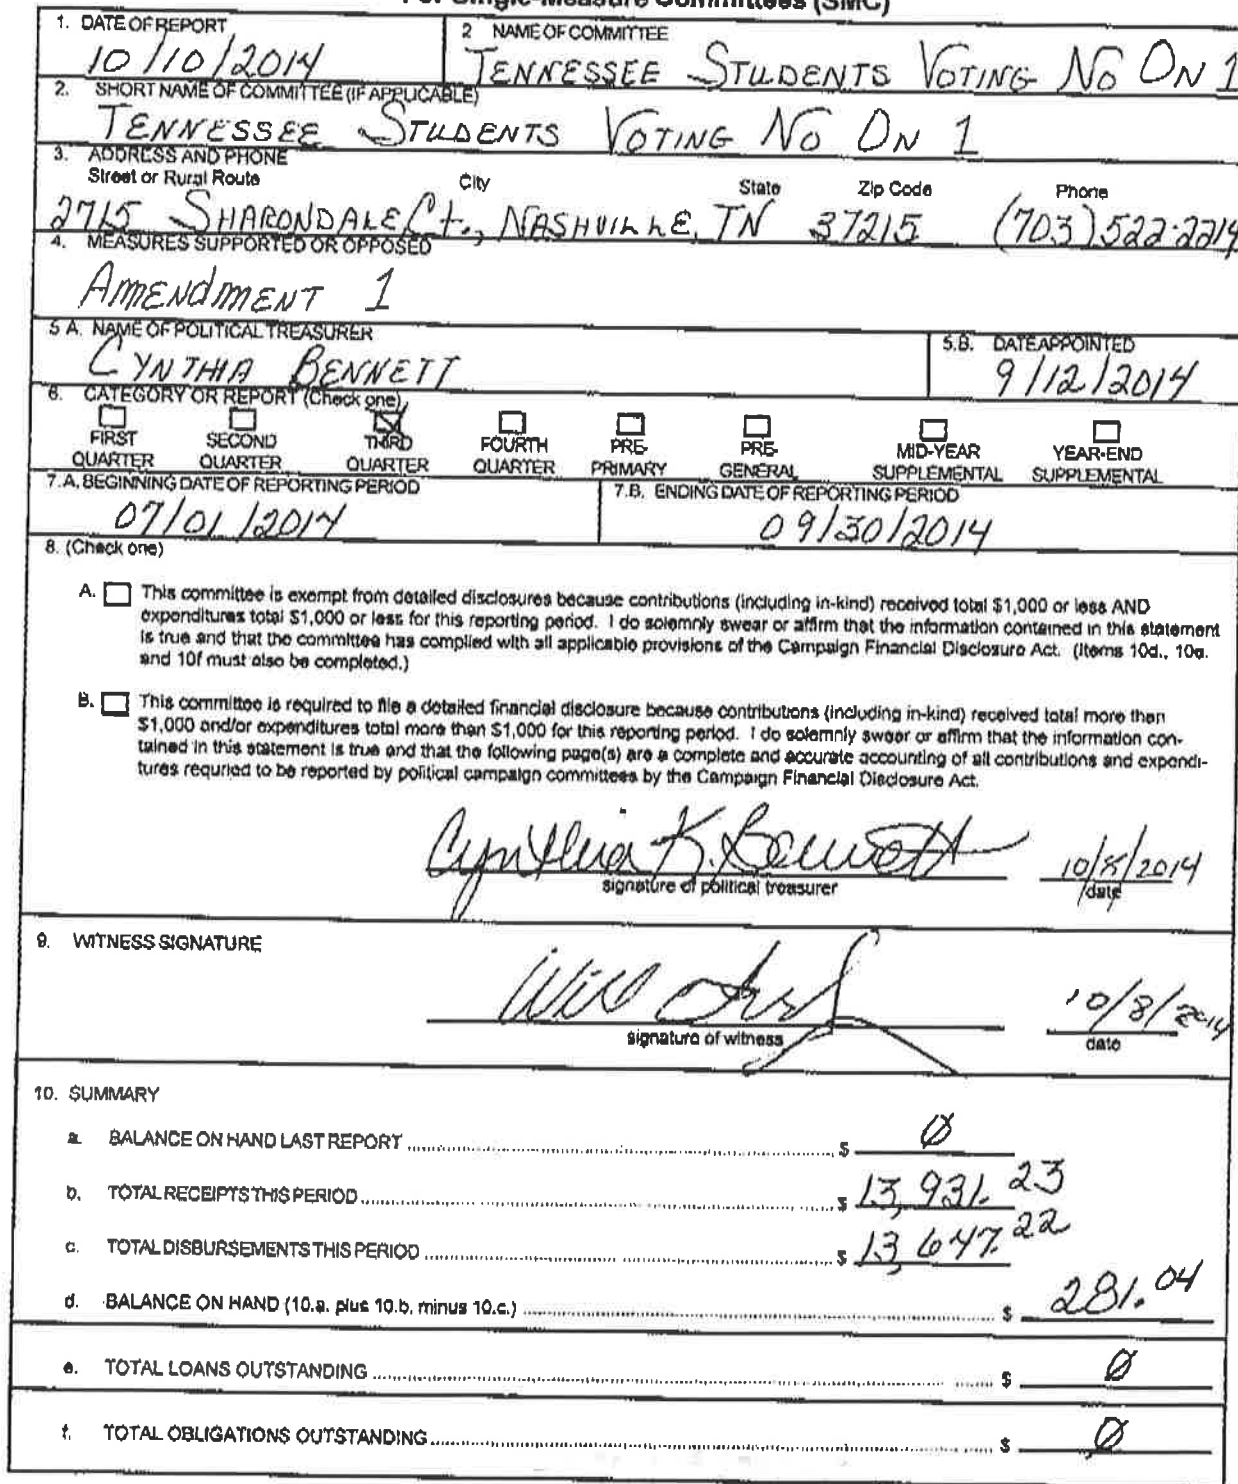 For Single-Measure Committees (SMC)
1. DATE OF REPORT
10/10/2014
2 NAME OF COMMITTEE
TENNESSEE STUDENTS VOTING NO ON 1
2. SHORT NAME OF COMMITTEE (IF APPLICABLE)
TENNESSEE STUDENTS VOTING NO ON 1
3. ADDRESS AND PHONE
Street or Rural Route City State Zip Code Phone
2715 SHARONDALE Ct., NASHVILLE, TN 37215 (703) 522-2214
4. MEASURES SUPPORTED OR OPPOSED
AMENDMENT 1
5 A. NAME OF POLITICAL TREASURER
CYNTHIA BENNETT
5.B. DATE APPOINTED
9/12/2014
6. CATEGORY OR REPORT (Check one)
FIRST QUARTER
SECOND QUARTER
THIRD QUARTER
FOURTH QUARTER
PRE-PRIMARY
PRE-GENERAL
MID-YEAR SUPPLEMENTAL
YEAR-END SUPPLEMENTAL
7.A. BEGINNING DATE OF REPORTING PERIOD
07/01/2014
7.B. ENDING DATE OF REPORTING PERIOD
09/30/2014
8. (Check one)
A. This committee is exempt from detailed disclosures because contributions (including in-kind) received total $1,000 or less AND
expenditures total $1,000 or less for this reporting period. I do solemnly swear or affirm that the information contained in this statement
is true and that the committee has complied with all applicable provisions of the Campaign Financial Disclosure Act. (Items 10d., 10e.
and 10f must also be completed.)
B. This committee is required to file a detailed financial disclosure because contributions (including in-kind) received total more than
$1,000 and/or expenditures total more than $1,000 for this reporting period. I do solemnly swear or affirm that the information con-
tained in this statement is true and that the following page(s) are a complete and accurate accounting of all contributions and expendi-
tures requried to be reported by political campaign committees by the Campaign Financial Disclosure Act.
Cynthia K. Bennett 10/8/2014
signature of political treasurer date
9. WITNESS SIGNATURE
Will 10/8/2014
signature of witness date
10. SUMMARY
a. BALANCE ON HAND LAST REPORT $ 0
b. TOTAL RECEIPTS THIS PERIOD $ 13,931.23
c. TOTAL DISBURSEMENTS THIS PERIOD $ 13,647.22
d. BALANCE ON HAND (10.a. plus 10.b. minus 10.c.) $ 281.04
e. TOTAL LOANS OUTSTANDING $ 0
f. TOTAL OBLIGATIONS OUTSTANDING $ 0